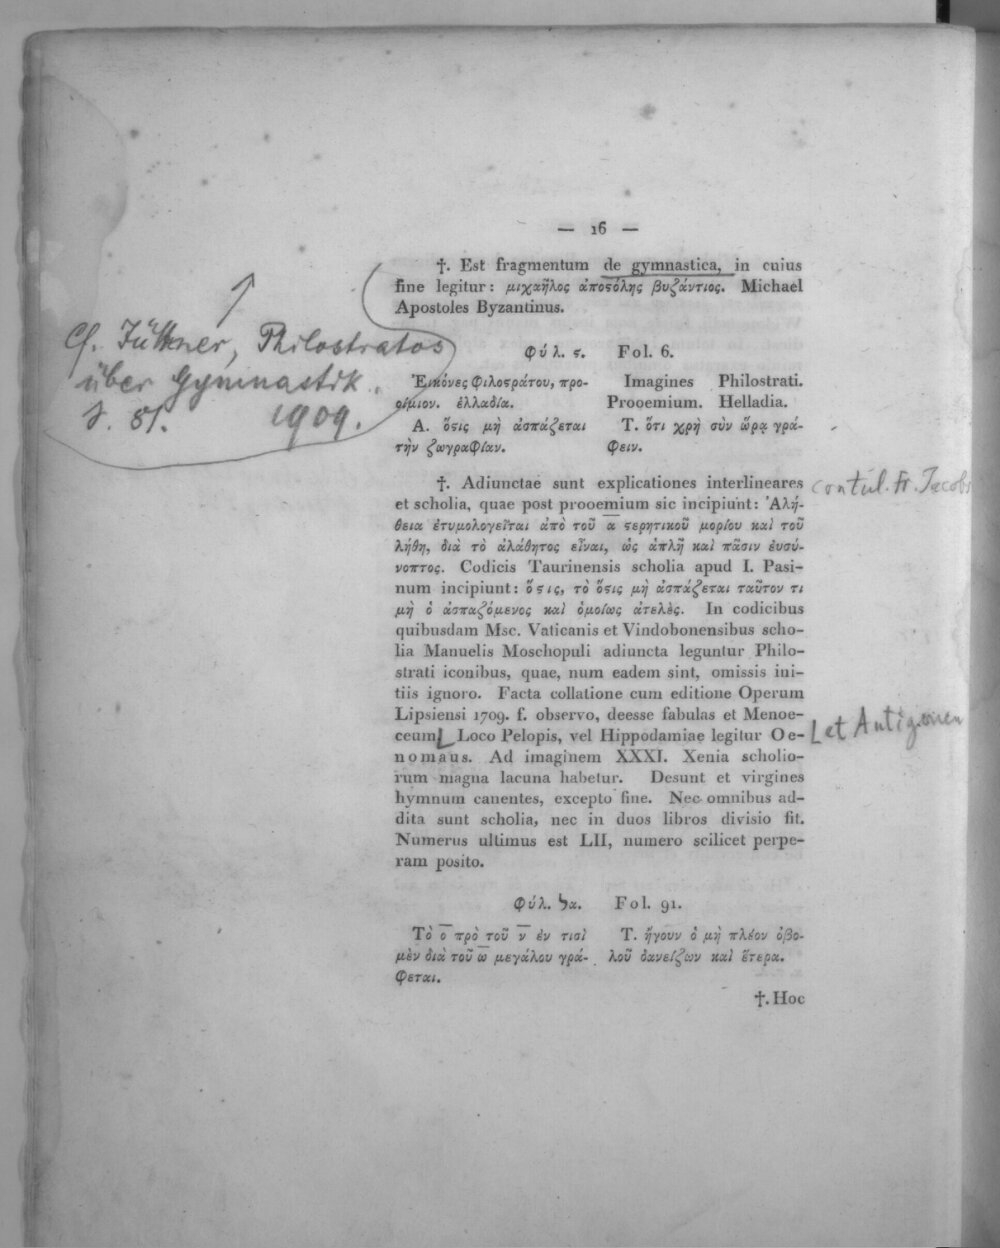 — 16 —
†. Est fragmentum de gymnastica, in cuius
fine legitur: μιχαῆλος ἀποϛόλης βυζάντιος. Michael
Apostoles Byzantinus.
Cf. Jüthner, Philostratos
über Gymnastik.
S. 81. 1909.
Φύλ. ϛ. Fol. 6.
Ἐικόνες Φιλοϛράτου, προ- Imagines Philostrati.
οίμιον. ἑλλαδία. Prooemium. Helladia.
Α. ὅϛις μὴ ἀσπάζεται Τ. ὅτι χρὴ σὺν ὥρᾳ γρά-
τὴν ζωγραΦίαν. Φειν.
†. Adiunctae sunt explicationes interlineares
contul. Fr. Jacobs
et scholia, quae post prooemium sic incipiunt: Ἀλή-
θεια ἐτυμολογεῖται ἀπὸ τοῦ α̅ ϛερητικοῦ μορίου καὶ τοῦ
λήθη, διὰ τὸ ἀλάθητος εἶναι, ὡς ἁπλῆ καὶ πᾶσιν ἐυσύ-
νοπτος. Codicis Taurinensis scholia apud I. Pasi-
num incipiunt: ὅϛις, τὸ ὅϛις μὴ ἀσπάζεται ταῦτον τι
μὴ ὁ ἀσπαζόμενος καὶ ὁμοίως ἀτελὲς. In codicibus
quibusdam Msc. Vaticanis et Vindobonensibus scho-
lia Manuelis Moschopuli adiuncta leguntur Philo-
strati iconibus, quae, num eadem sint, omissis ini-
tiis ignoro. Facta collatione cum editione Operum
Lipsiensi 1709. f. observo, deesse fabulas et Menoe-
ceum⌊ Loco Pelopis, vel Hippodamiae legitur Oe-
⌊et Antigonen
nomaus. Ad imaginem XXXI. Xenia scholio-
rum magna lacuna habetur. Desunt et virgines
hymnum canentes, excepto fine. Nec omnibus ad-
dita sunt scholia, nec in duos libros divisio fit.
Numerus ultimus est LII, numero scilicet perpe-
ram posito.
Φύλ. ϟα. Fol. 91.
Τὸ ο̅ πρὸ τοῦ ν̅ ἐν τισὶ Τ. ἤγουν ὁ μὴ πλέον ὀβο-
μὲν διὰ τοῦ ω̅ μεγάλου γρά- λοῦ δανείζων καὶ ἕτερα.
Φεται.
†. Hoc